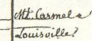 Mt. Carmel &
Louisville?